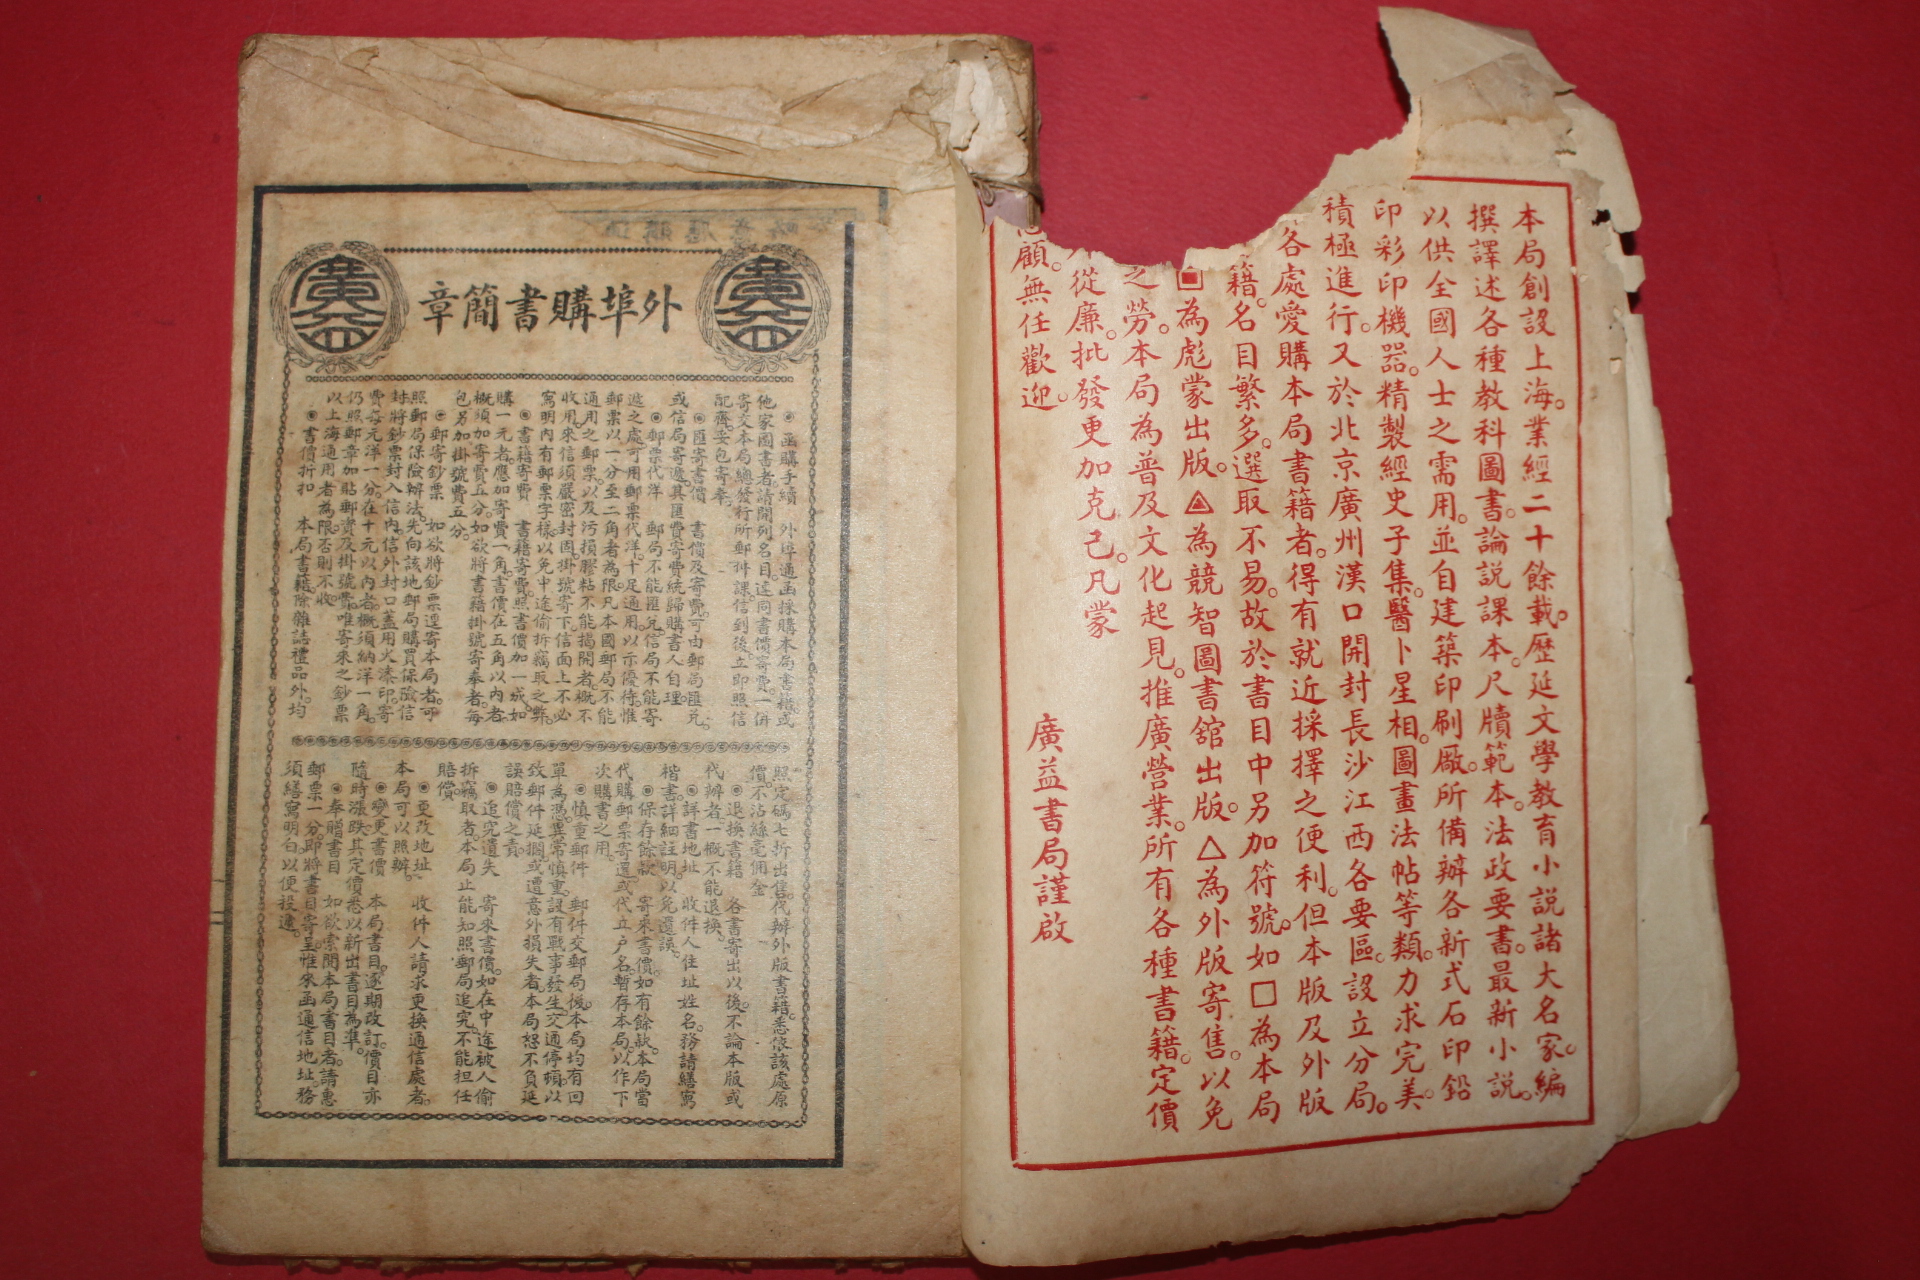 本局創設上海。業經二十餘載。歷延文學教育小說諸大名家。編
撰譯述各種教科圖書。論說課本。尺牘範本。法政要書。最新小說。
以供全國人士之需用。並自建築印刷廠。所備辦各新式石印鉛
印彩印機器。精製經史子集。醫卜星相。圖畫法帖等類。力求完美。
積極進行。又於北京廣州漢口開封長沙江西各要區。設立分局。
各處愛購本局書籍者。得有就近採擇之便利。但本版及外版
籍。名目繁多。選取不易。故於書目中另加符號。如□為本局
▣為彪蒙出版。◬為競智圖書舘出版。△為外版寄售。以免
之勞。本局為普及文化起見。推廣營業。所有各種書籍。定價
從廉。批發更加克己。凡蒙
顧。無任歡迎。
廣益書局謹啟
外埠購書簡章
廣益
廣益
◉函購手續　外埠通函採購本局書籍或
他家圖書者。請開列名目。連同書價寄費。一併
寄交本局總發行所郵件課。信到後。立即照信
配齊。妥包寄奉。
◉匯寄書價　書價及寄費。可由郵局匯兌。
或信局寄遞。其匯費寄費。統歸購書人自理。
◉郵票代洋　郵局不能匯兌。信局不能寄
遞之處。可用郵票代洋。十足通用。以示優待。惟
郵票以一分至二角者為限。凡本國郵局不能
通用之郵票。以及污損膠粘不能揭開者。概不
收用。來信須嚴密封固。掛號寄下。信面上不必
寫明內有郵票字樣。以免中途偷拆竊取之弊。
◉書籍寄費　書籍寄費。照書價加一成。如
購一元者。應加寄費一角。書價在五角以內者。
概須加寄費五分。如欲將書籍掛號寄奉者。每
包另加掛號費五分。
◉郵寄鈔票　如欲將鈔票逕寄本局者。可
照郵局保險辦法。先向該地郵局購買保險信
封。將鈔票封入信內。信外封口。蓋用火漆印。寄
費每元洋一分。在十元以內者。概須納洋一角。
仍照郵章加貼郵資及掛號費。唯寄來之鈔票
以上海通用者為限。否則不收。
◉書價折扣　本局書籍。除雜誌禮品外。均
照定碼七折出售。代辦外版書籍。悉依該處原
價。不沾絲毫佣金。
◉退換書籍　各書寄出以後。不論本版或
代辦者。一概不能退換。
◉詳書地址　收件人住址姓名。務請繕寫
楷書。詳細註明。以免遲誤。
◉保存餘款　寄來書價。如有餘款。本局當
代購郵票寄還。或代立戶名。暫存本局。以作下
次購書之用。
◉慎重郵件　郵件交郵局後。本局均有回
單為憑。異常慎重。設有戰事發生。交通停頓。以
致郵件延擱。或遭意外損失者。本局恕不負延
誤賠償之責。
◉追究遺失　寄來書價。如在中途被人偷
拆竊取者。本局止能知照郵局追究。不能担任
賠償。
◉更改地址　收件人請求更換通信處者。
本局可以照辦。
◉變更書價　本局書目。逐期改訂。價目亦
隨時漲跌。其定價悉以新出書目為準。
◉奉贈書目　如欲索閱本局書目者。請惠
郵票一分。即將書目寄呈。惟來函通信地址。務
須繕寫明白。以便投遞。